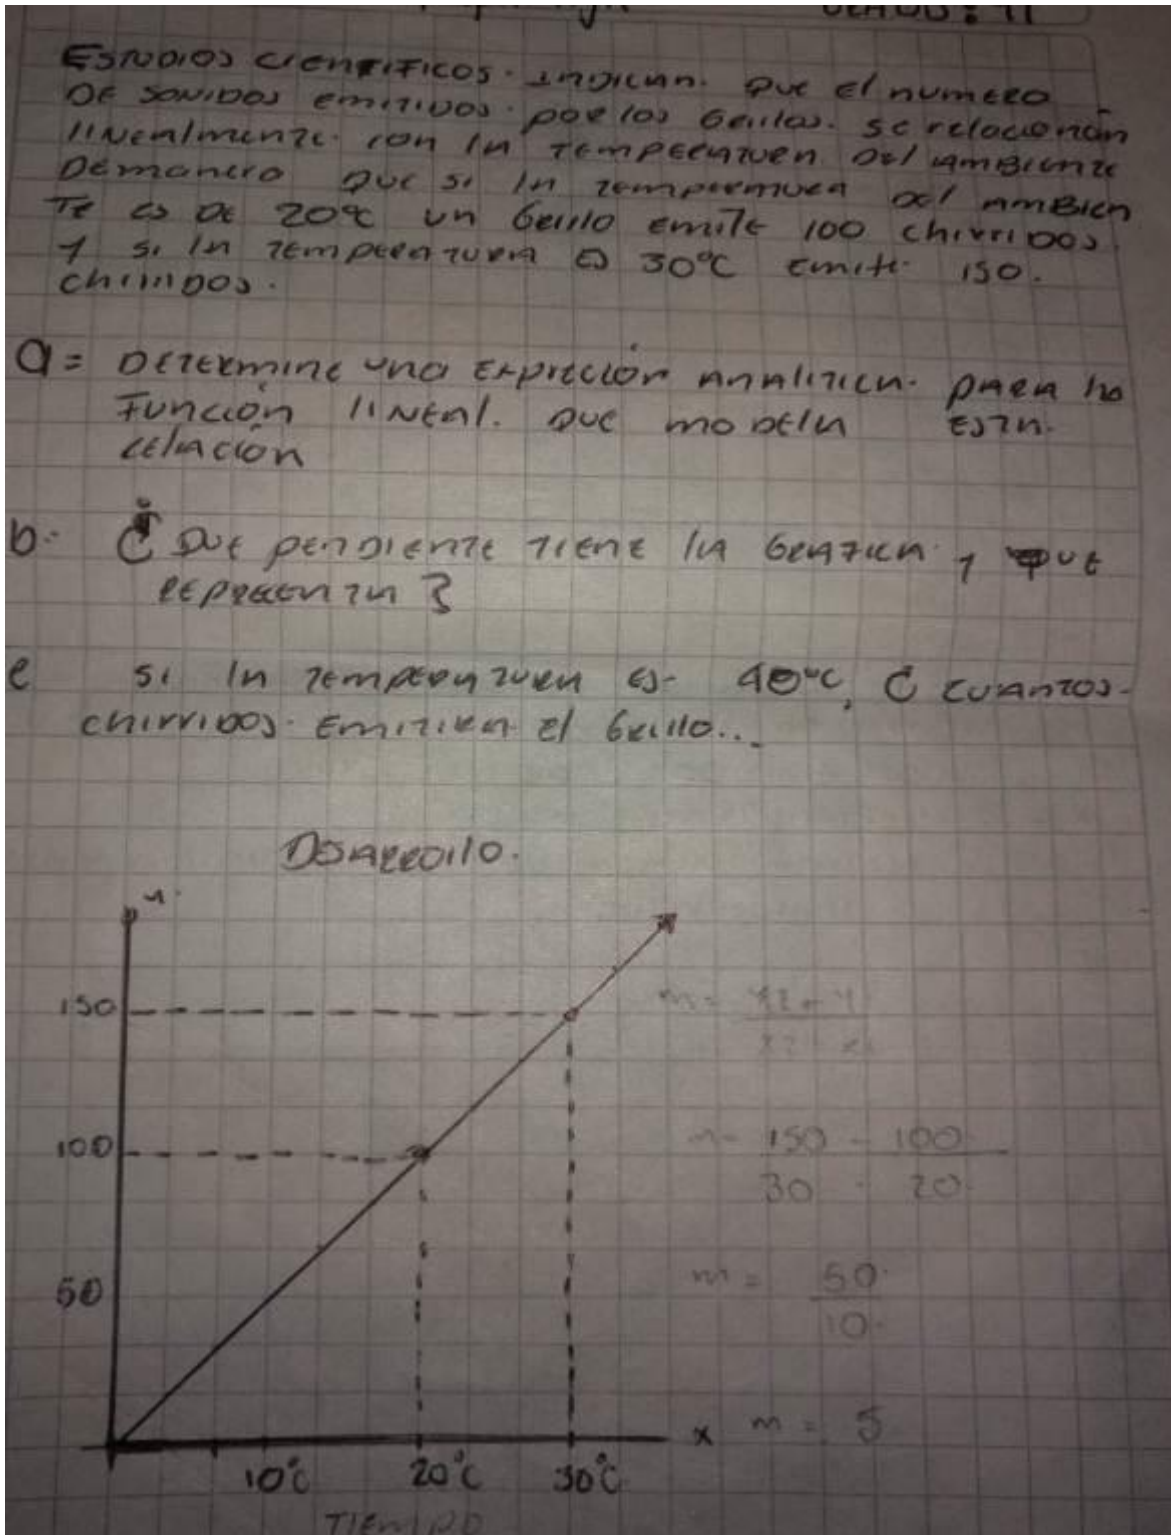 GRADO: 11
ESTUDIOS CIENTIFICOS. INDICAN. QUE El numero
DE SONIDOS EMITIDOS. POR los Grillos. se relacionan
linealmente. con la TEMPERATURA DEl AMBIENTE
DE manera QUE si la temperatura del AMBIEN
TE es DE 20°C un Grillo Emite 100 chirridos.
Y si la TEMPERATURA ES 30°C Emite. 150.
chirridos.
a= DETERMINE una Expreción ANALITICA. PARA la
Función lINEAl. QUE moDEla ESTA.
relación
b. ¿ QUE pendiente TIENE la GRAFICA. y QUE
REPRESENTA ?
c si la temperatura es- 40°C, ¿ cuantos-
chirridos. EMITIRA El Grillo...
DESARROllo.
y.
150
m= Y2 - Y1
X2 - X1
100
m= 150 - 100
30 - 20
50
m = 50
10
x m = 5
10°C 20°C 30°C
TIEMPO